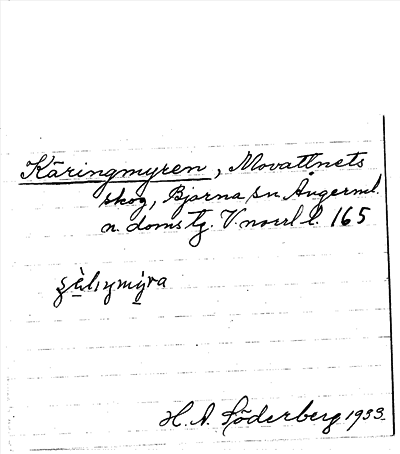 Käringmyren, Movattnets
skog, Bjärna sn Ångerml.
n. domstg. V.norrl l. 165
H. A. Söderberg 1933